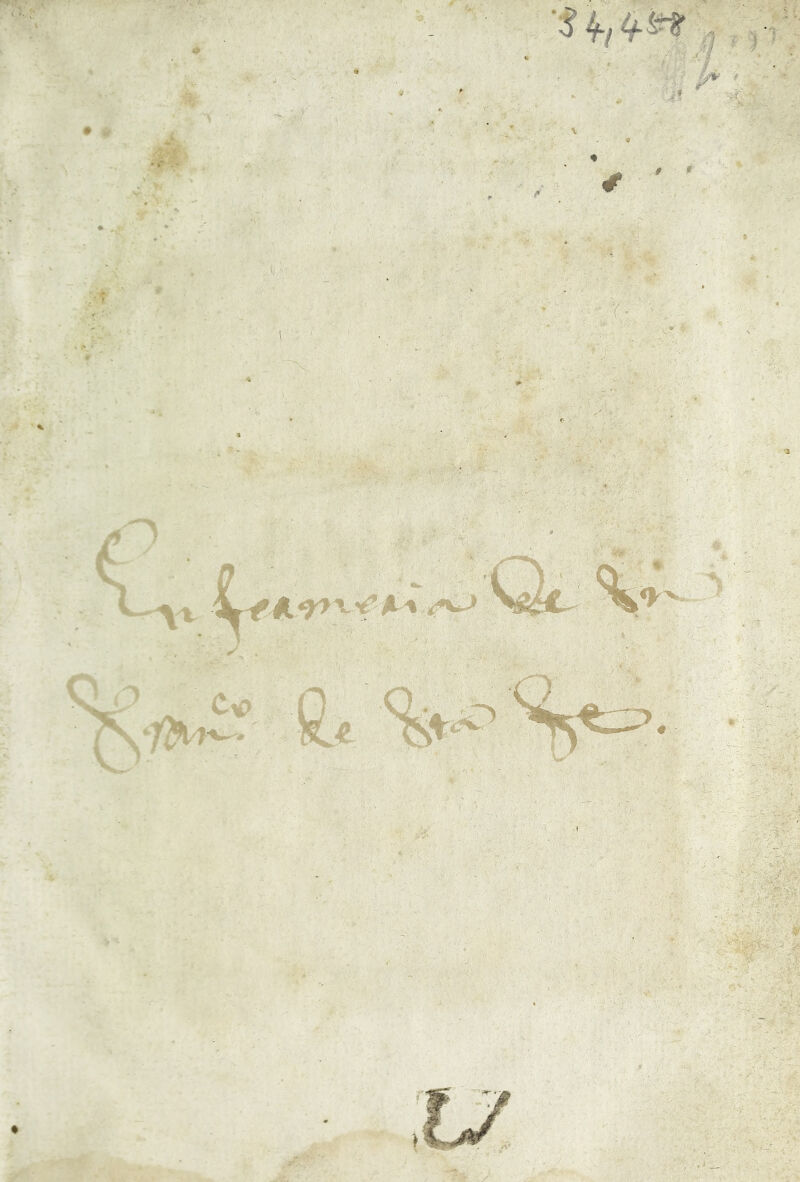 34,458
Enfermeria de Sn
Franco. de Sta Fe.